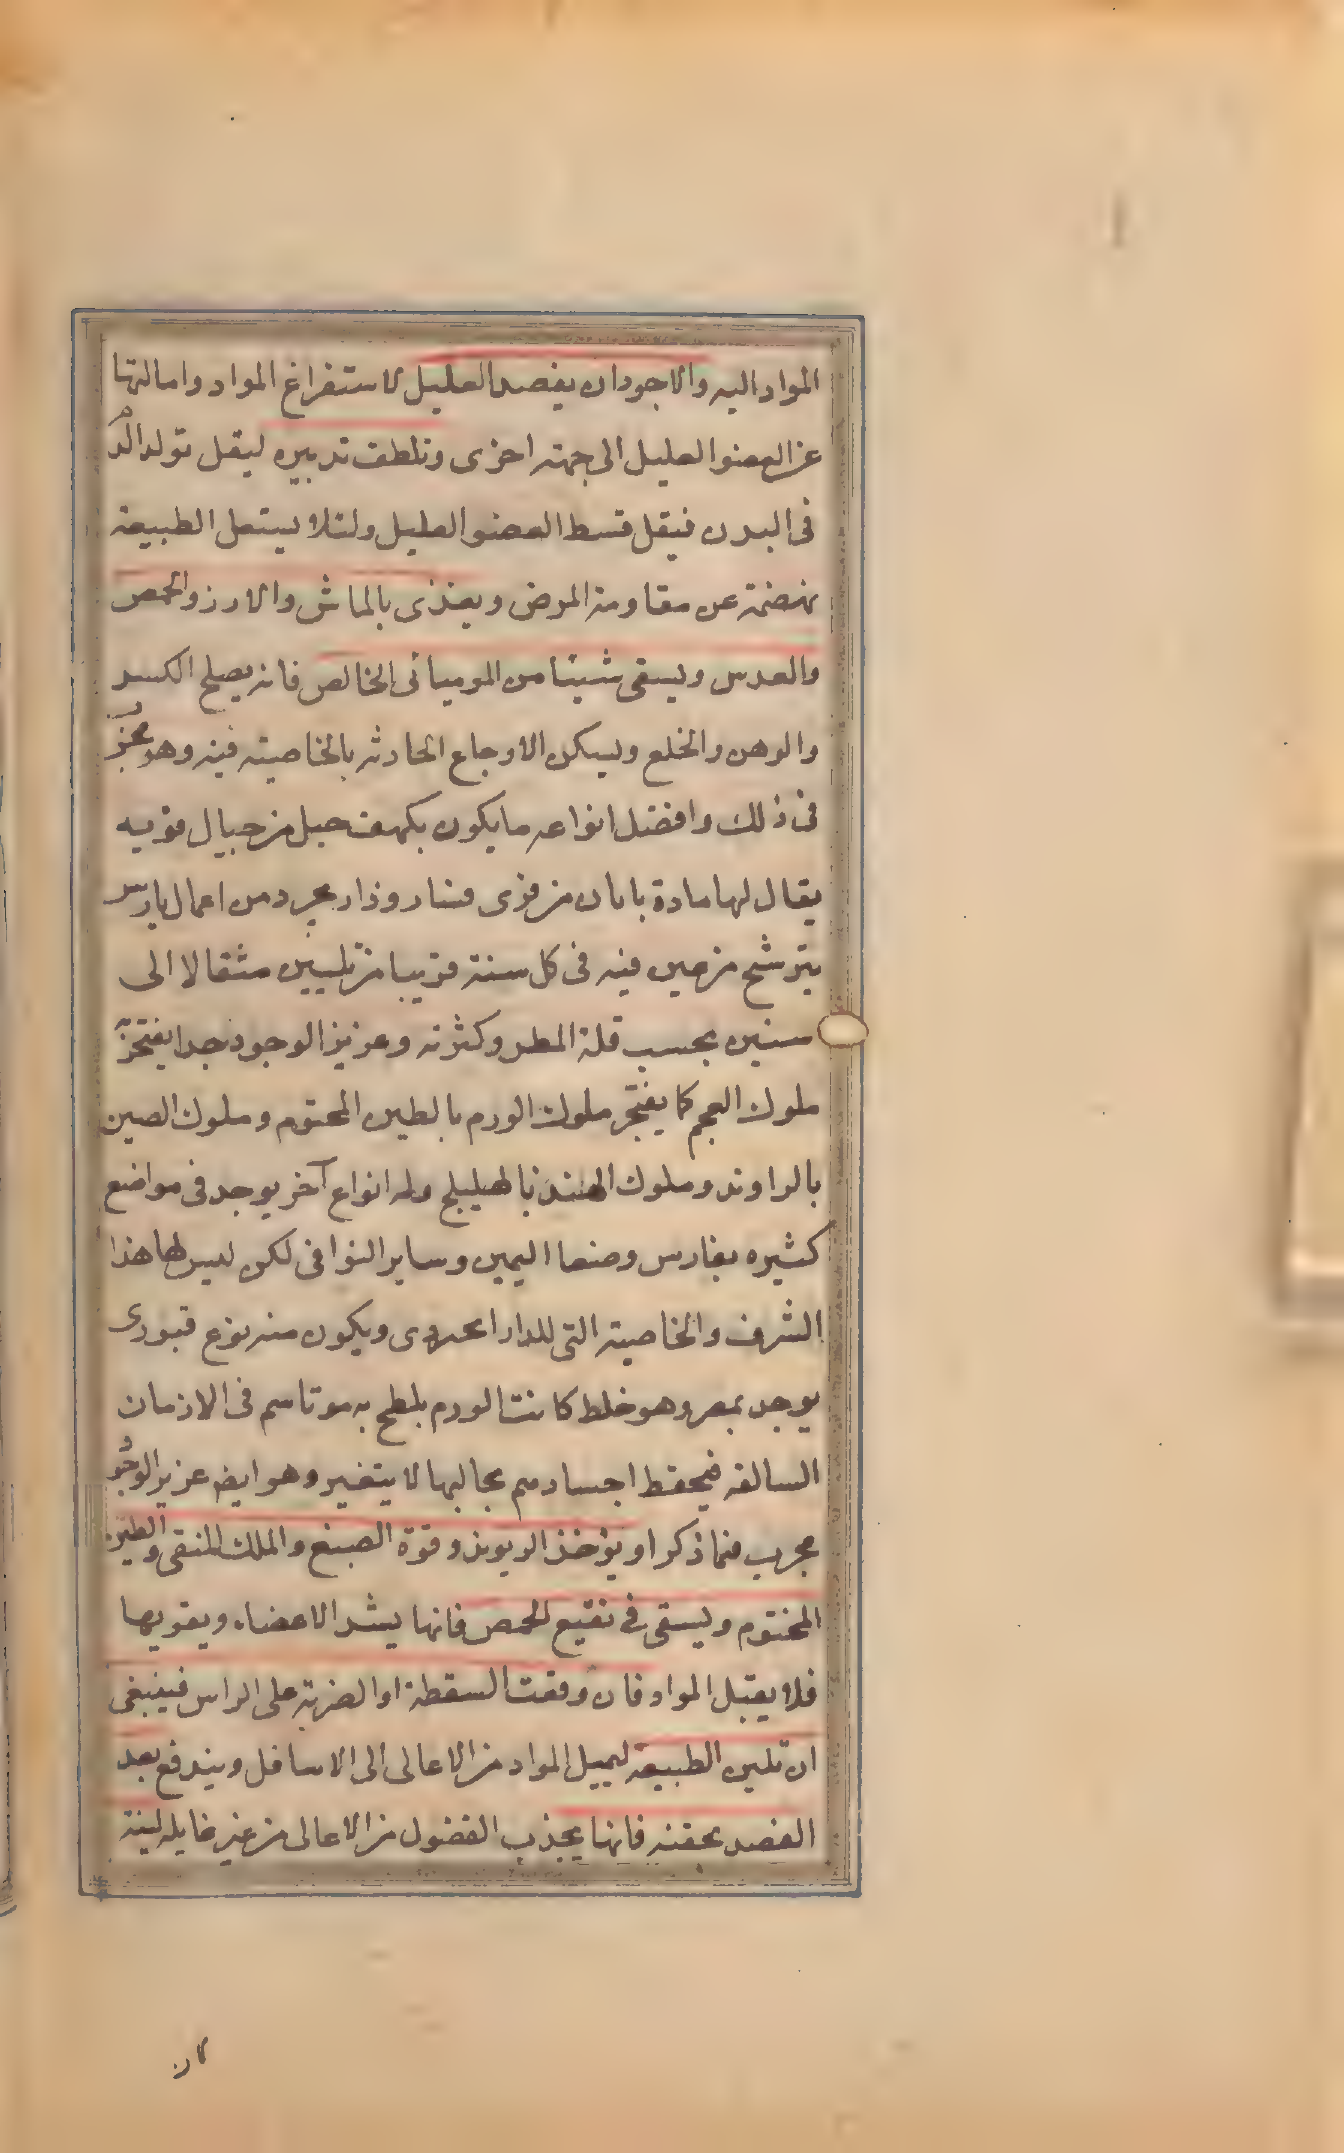 المواد اليه والاجود ان يفصد العليل لاستفراغ المواد وامالتها
عن العضو العليل الى جهته اخرى وتلطف تدبيره ليقل تولد الدم
فى البدن فيقل قسط العضو العليل ولئلا يستعل الطبيعة
بهضمة عن مقاومة المرض ويغذى بالماش والارز والحمص
والعدس ويسقى شيئا من الموميائى الخالص فانه يصلح الكسر
والوهن والخلع ويسكن الاوجاع الحادثه بالخاصيته فيه وهو مجرب
فى ذلك وافضل انواعه ما يكون بكهف جبل من جبال قريه
يقال لها مادة بابان من قرى من اعمال پارس
يترشح من عين فيه فى كل سنة قريبا من ثلثين مثقالا الى
سنين بحسب قلة المطر وكثرته وعزيز الوجود جدا يفتخر به
ملوك العجم كما يفتخر ملوك الورم بالطين المختوم وملوك الصين
بالراوند وملوك الهند بالهليلج وله انواع آخر يوجد فى مواضع
كثيره بفارس وصنعا اليمن وساير النواحى لكن ليس لها هذا
الشرف والخاصيته التى ويكون منه نوع قبورى
يوجد بمصر وهو خلط كانت الورم يلطخ به موتاسم فى الازمان
السالفه فيحفظ اجسادهم بحالها لا يتغير وهو ايض عزيز الوجود
مجرب فيما ذكر او يؤخذ الريوند وقوة الصبغ والملك المنقى والطين
المختوم ويسقى فى نقيع الحمص فانها يشد الاعضاء ويقويها
فلا يقبل المواد فان وقعت السقطة او الضربة على الراس فينبغى
ان تلين الطبيعة ليميل المواد من الاعالى الى الاسافل ويندفع بعد
الفصد بحقنه فانها يجذب الفضول من الاعالى من غير غايله لينة
كان